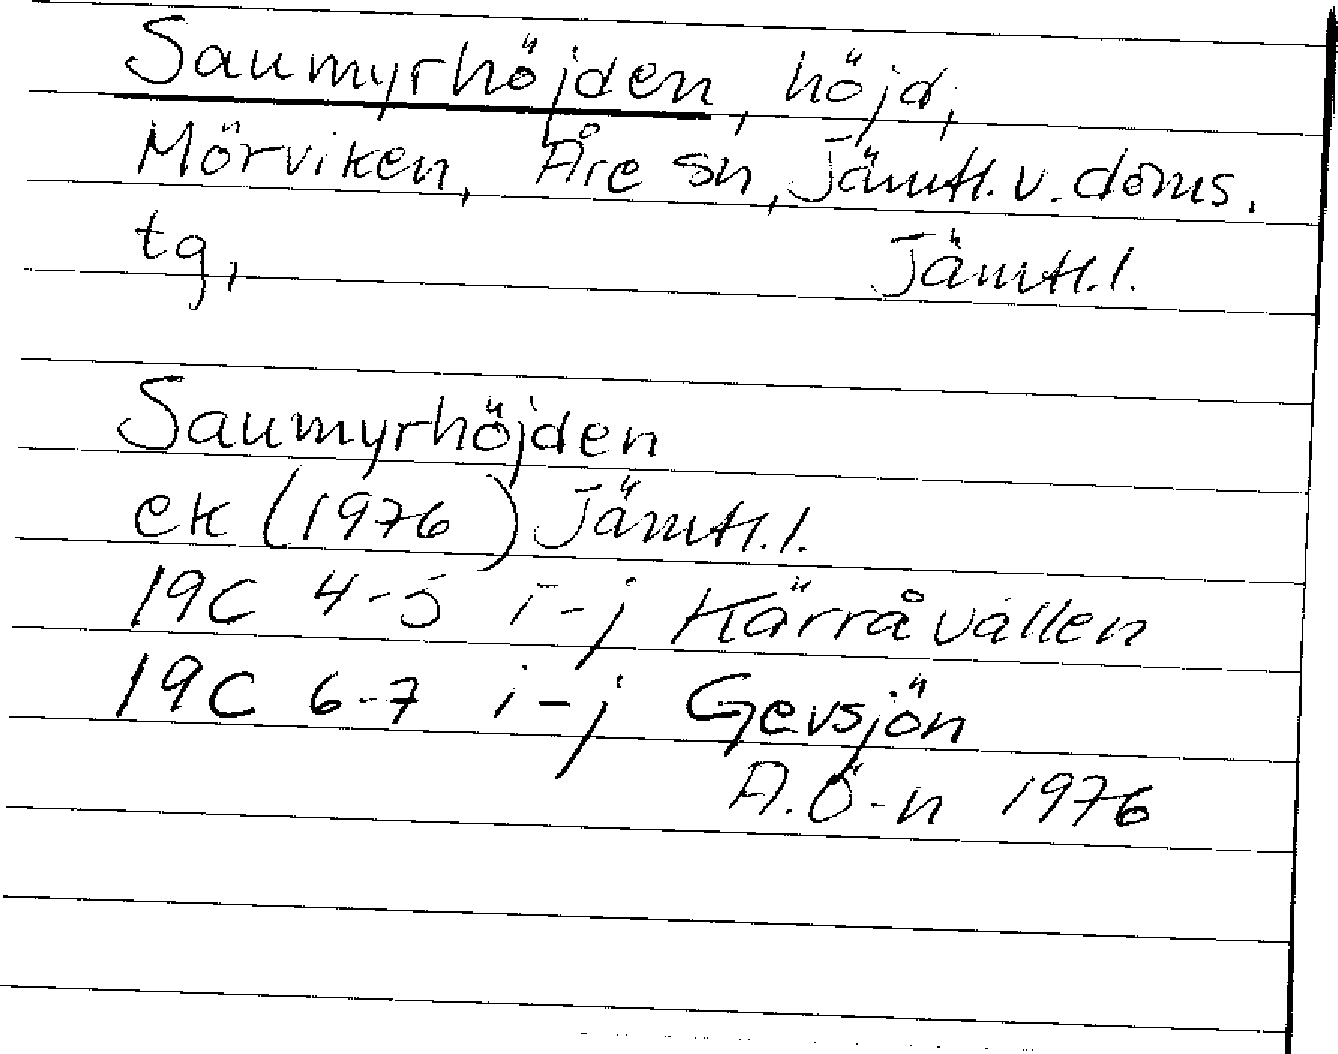 Saumyrhöjden, höjd,
Mörviken, Åre sn, Jämtl. v. doms.
tg, Jämtl. l.
Saumyrhöjden
ek (1976) Jämtl. l.
19C 4-5 i-j Kärråvallen
19C 6-7 i-j Gevsjön
A.Ö-n 1976